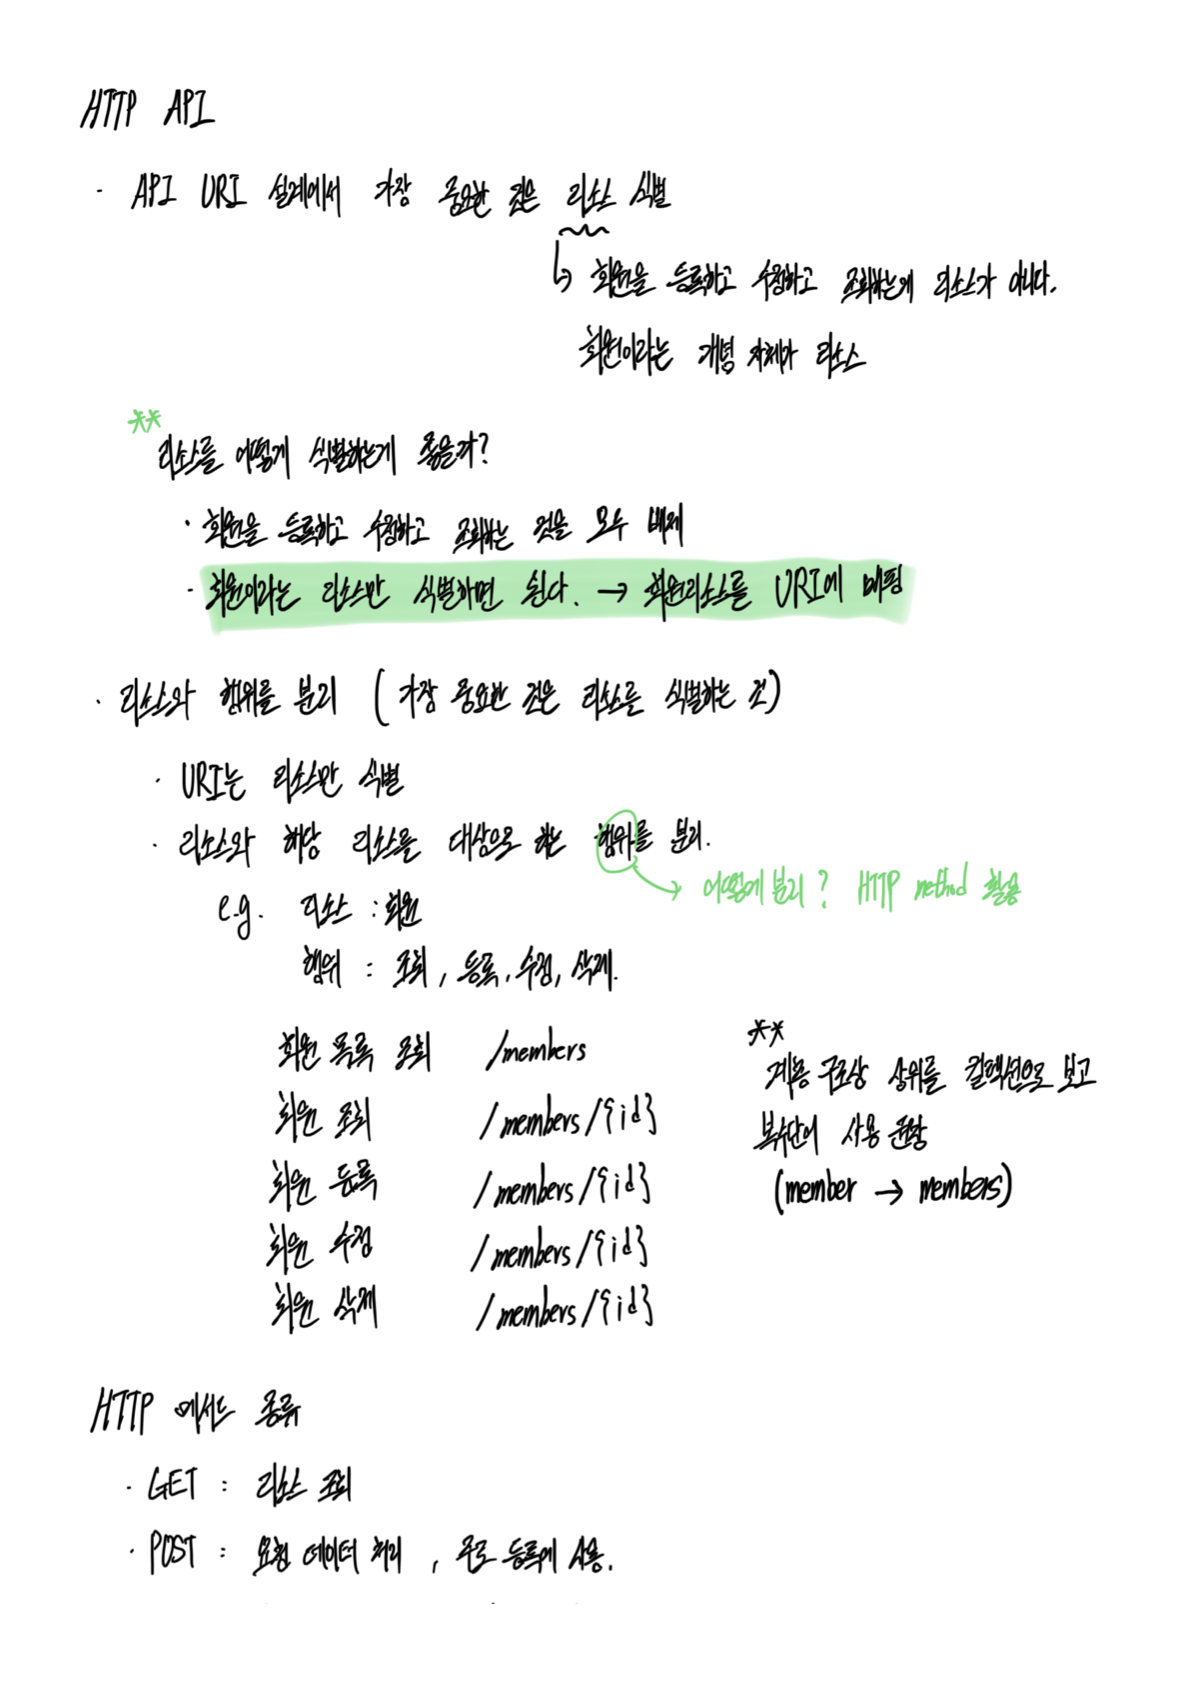 HTTP API
· API URI 설계에서 가장 중요한 것은 리소스 식별
↳ 회원을 등록하고 수정하고 조회하는게 리소스가 아니다.
회원이라는 개념 자체가 리소스
**
리소스를 어떻게 식별하는게 좋을까?
· 회원을 등록하고 수정하고 조회하는 것을 모두 배제
· 회원이라는 리소스만 식별하면 된다. → 회원리소스를 URI에 매핑
· 리소스와 행위를 분리 (가장 중요한 것은 리소스를 식별하는 것)
· URI는 리소스만 식별
· 리소스와 해당 리소스를 대상으로 하는 행위를 분리.
→ 어떻게 분리? HTTP method 활용
e.g. 리소스 : 회원
행위 : 조회, 등록, 수정, 삭제.
회원 목록 조회 /members
회원 조회 /members/{id}
회원 등록 /members/{id}
회원 수정 /members/{id}
회원 삭제 /members/{id}
**
계층 구조상 상위를 컬렉션으로 보고
복수단어 사용 권장
(member → members)
HTTP 메서드 종류
· GET : 리소스 조회
· POST : 요청 데이터 처리, 주로 등록에 사용.